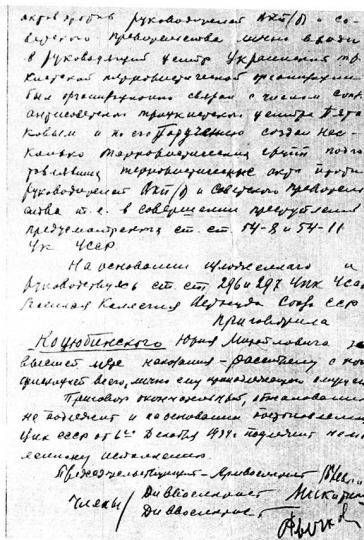 руководителей ВКП(б) и со
ветского правительства лично входил
в руководящий центр Украинской тро
цкистской террористической организации
был организационно связан с членом
антисоветского троцкистского центра Пята
ковым и по его поручению создал нес
колько террористических групп подго
товлявших террористические акты против
руководителей ВКП(б) и Советского правитель
ства т.е. в совершении преступления
предусмотренного ст. ст. 54-8 и 54-11
УК УССР
На основании изложенного и
руководствуясь ст. ст. 296 и 297 УПК УССР
Военная Коллегия Верхсуда Союза ССР
Приговорила
Коцюбинского Юрия Михайловича
высшей мере наказания – расстрелу с кон
фискацией всего, лично ему принадлежащего имущества
Приговор окончательный, обжалованию
не подлежит и на основании постановления
ЦИК СССР от 1го Декабря 1934г подлежит немед
ленному исполнению.
Председательствующий – Армвоенюрист
Члены / Диввоенюрист
Диввоенюрист